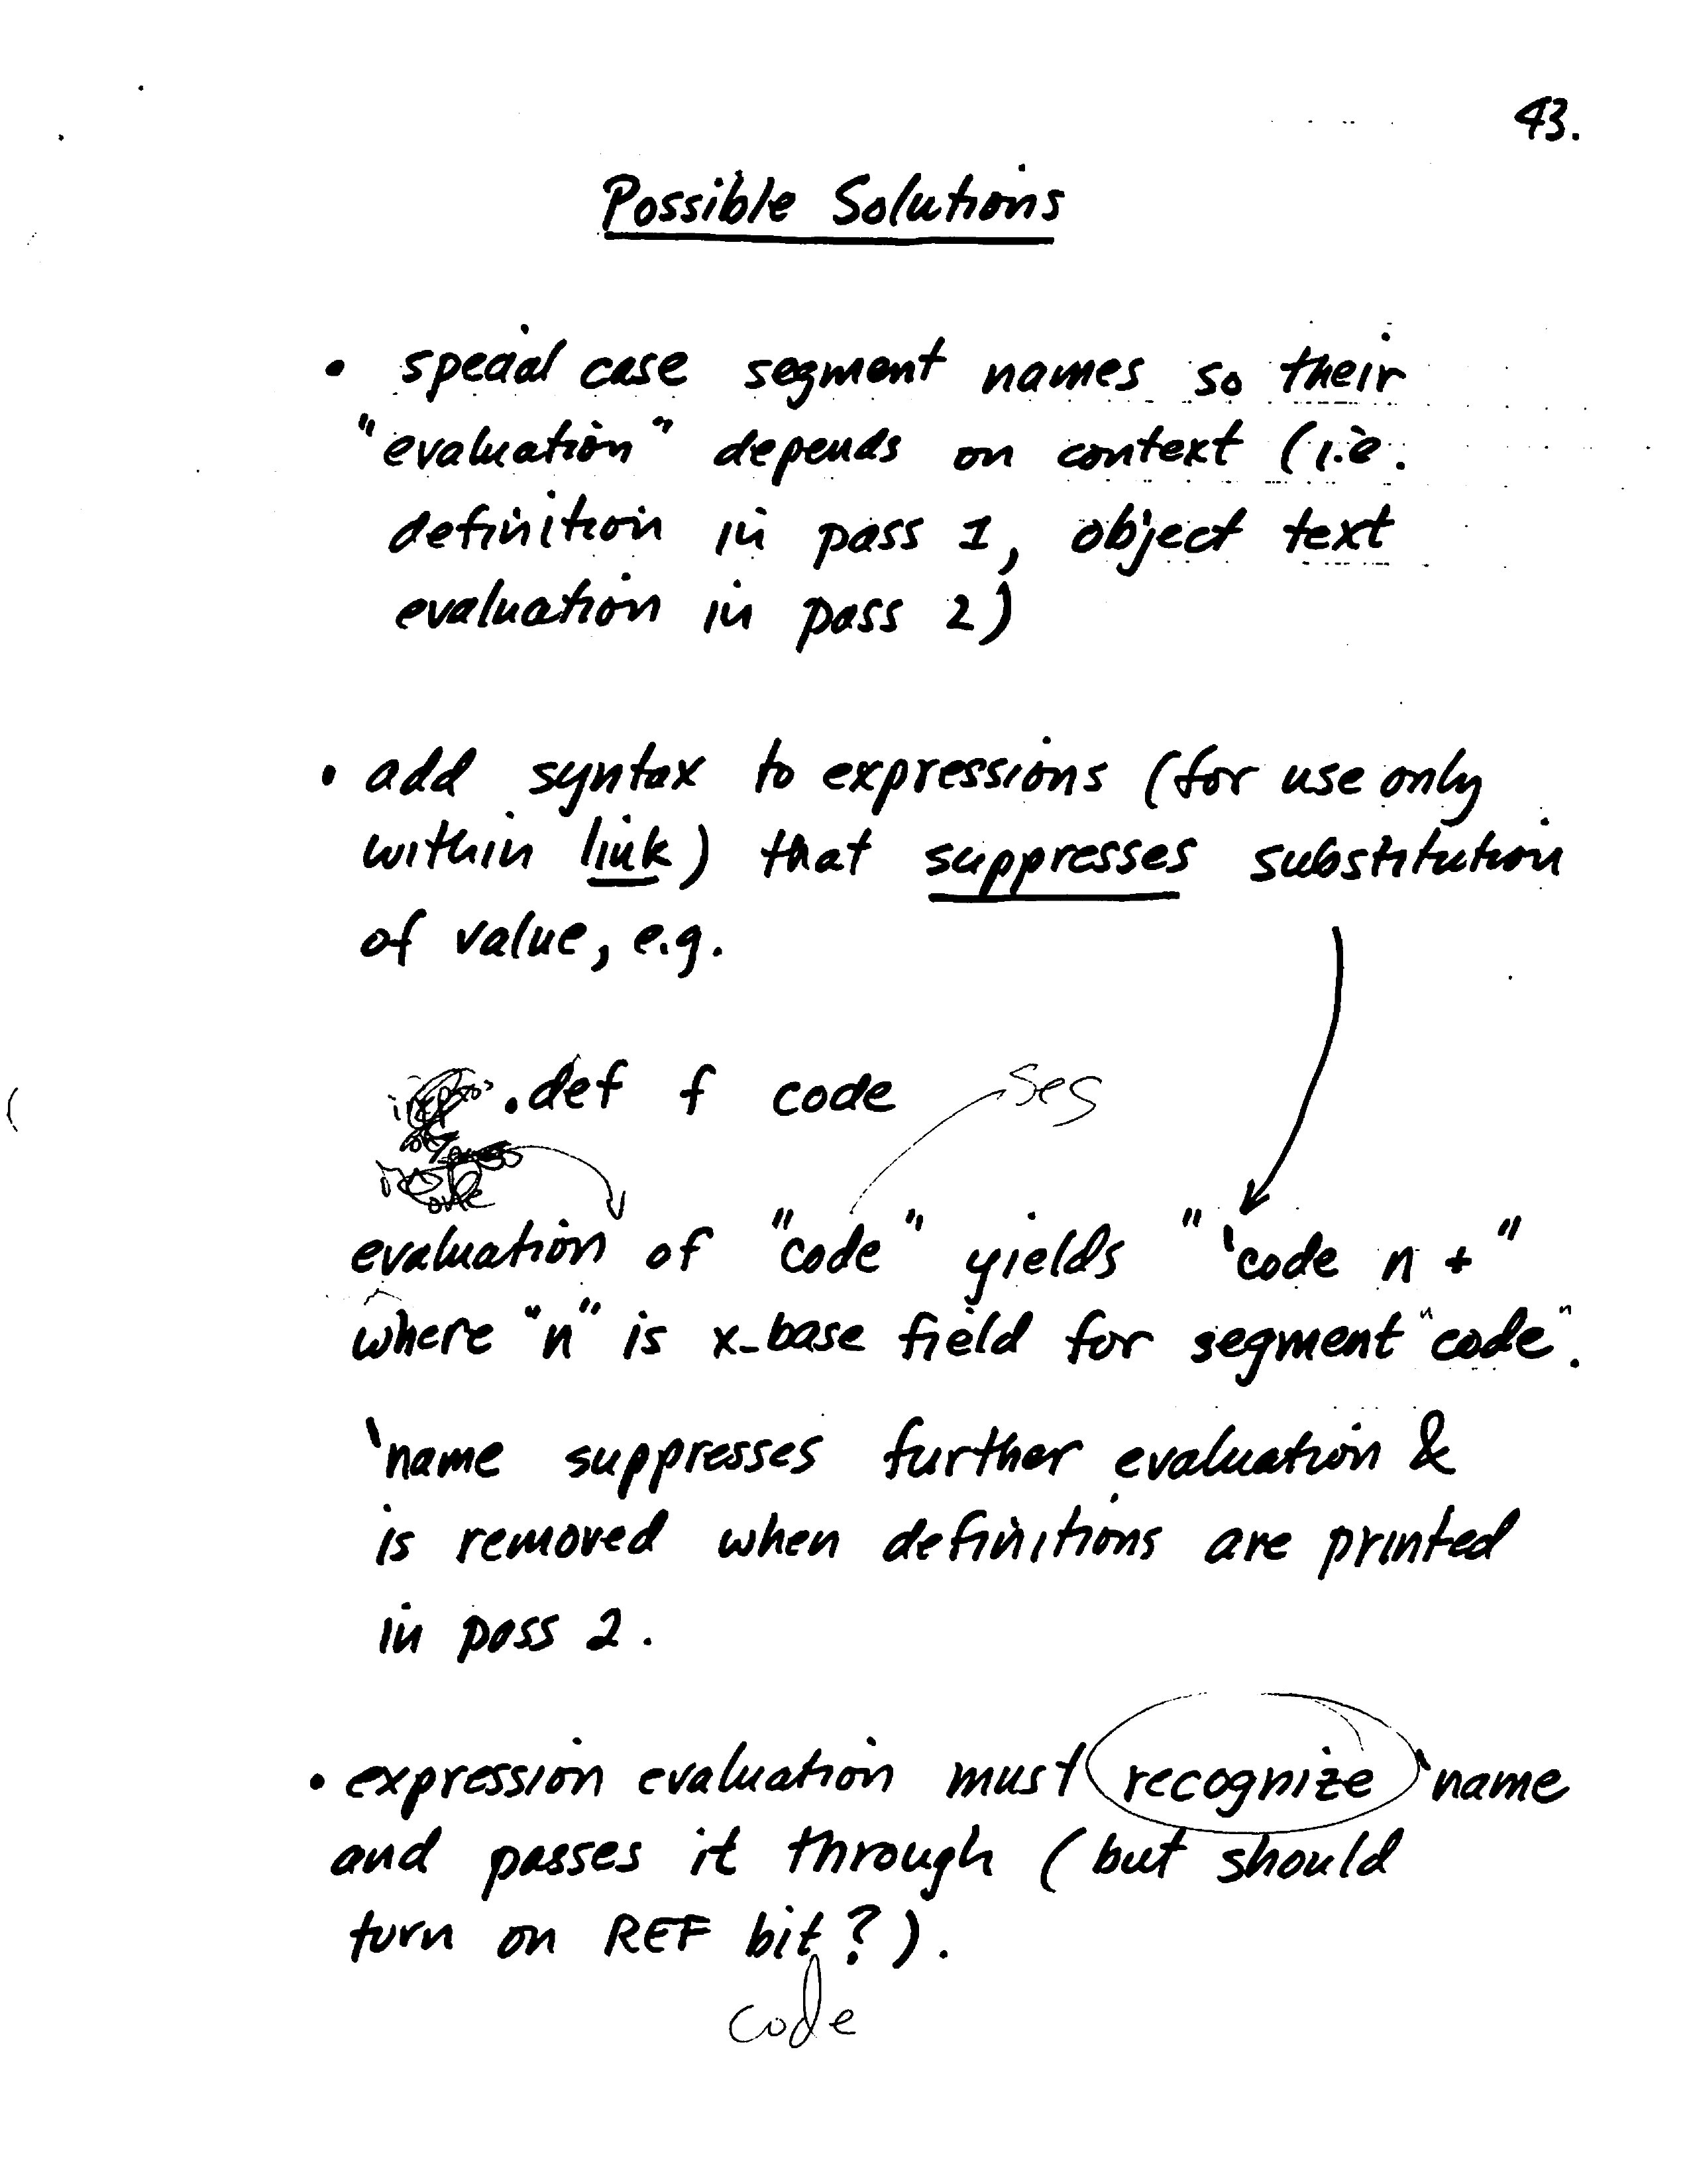 43.
Possible Solutions
• special case segment names so their
"evaluation" depends on context (i.e.
definition in pass 1, object text
evaluation in pass 2)
• add syntax to expressions (for use only
within link) that suppresses substitution
of value, e.g.
.def f code
seg
evaluation of "code" yields "`code n +"
where "n" is x_base field for segment "code".
`name suppresses further evaluation &
is removed when definitions are printed
in pass 2.
• expression evaluation must recognize `name
and passes it through (but should
turn on REF bit?).
code